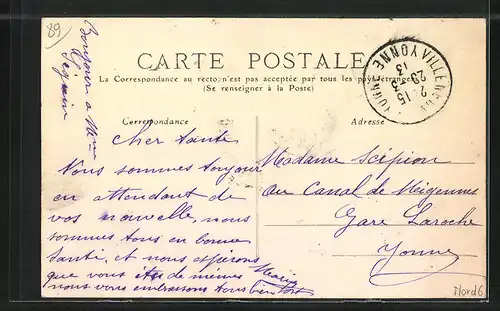 89
Bonjour a Mme
Seguin
CARTE POSTALE
La Correspondance au recto, n'est pas acceptée par tous les pays étrangers
(Se renseigner à la Poste)
VILLENEUVE
YONNE
2 15
20-3
13
Correspondance
Adresse
Cher tante
Nous sommes toujour
en attendant de
vos nouvelle, nous
sommes tous en bonne
santé, et nous espérons
que vous êtes de mêmes
nous vous embrassons tous bien fort
Marie
Madame Scipion
au Canal de Migennes
Gare Laroche
Yonne
Nord6